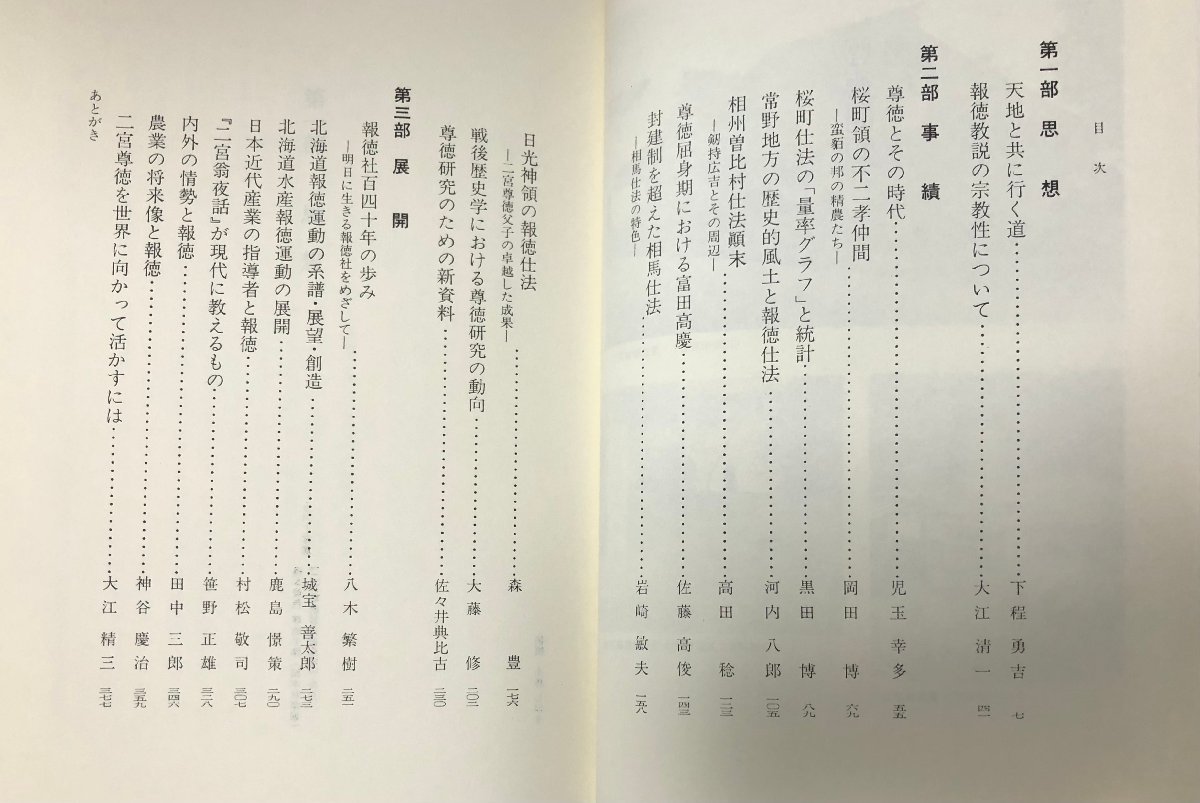 目次
第一部 思想
天地と共に行く道……下程勇吉 七
報徳教説の宗教性について……大江清一 四一
第二部 事績
尊徳とその時代……児玉幸多 五五
桜町領の不二孝仲間……岡田博 六九
―蛮貊の邦の精農たち―
桜町仕法の「量率グラフ」と統計……黒田博 八九
常野地方の歴史的風土と報徳仕法……河内八郎 一〇五
相州曽比村仕法顚末……高田稔 一二三
―剱持広吉とその周辺―
尊徳屈身期における富田高慶……佐藤高俊 一四三
封建制を超えた相馬仕法……岩崎敏夫 一五八
―相馬仕法の特色―
日光神領の報徳仕法……森豊 一七六
―二宮尊徳父子の卓越した成果―
戦後歴史学における尊徳研究の動向……大藤修 二〇三
尊徳研究のための新資料……佐々井典比古 二三〇
第三部 展開
報徳社百四十年の歩み……八木繁樹 二五一
―明日に生きる報徳社をめざして―
北海道報徳運動の系譜・展望・創造……城宝善太郎 二七三
北海道水産報徳運動の展開……鹿島憬策 二九〇
日本近代産業の指導者と報徳……村松敬司 三〇七
『二宮翁夜話』が現代に教えるもの……笹野正雄 三二八
内外の情勢と報徳……田中三郎 三四六
農業の将来像と報徳……神谷慶治 三五九
二宮尊徳を世界に向かって活かすには……大江精三 三七七
あとがき